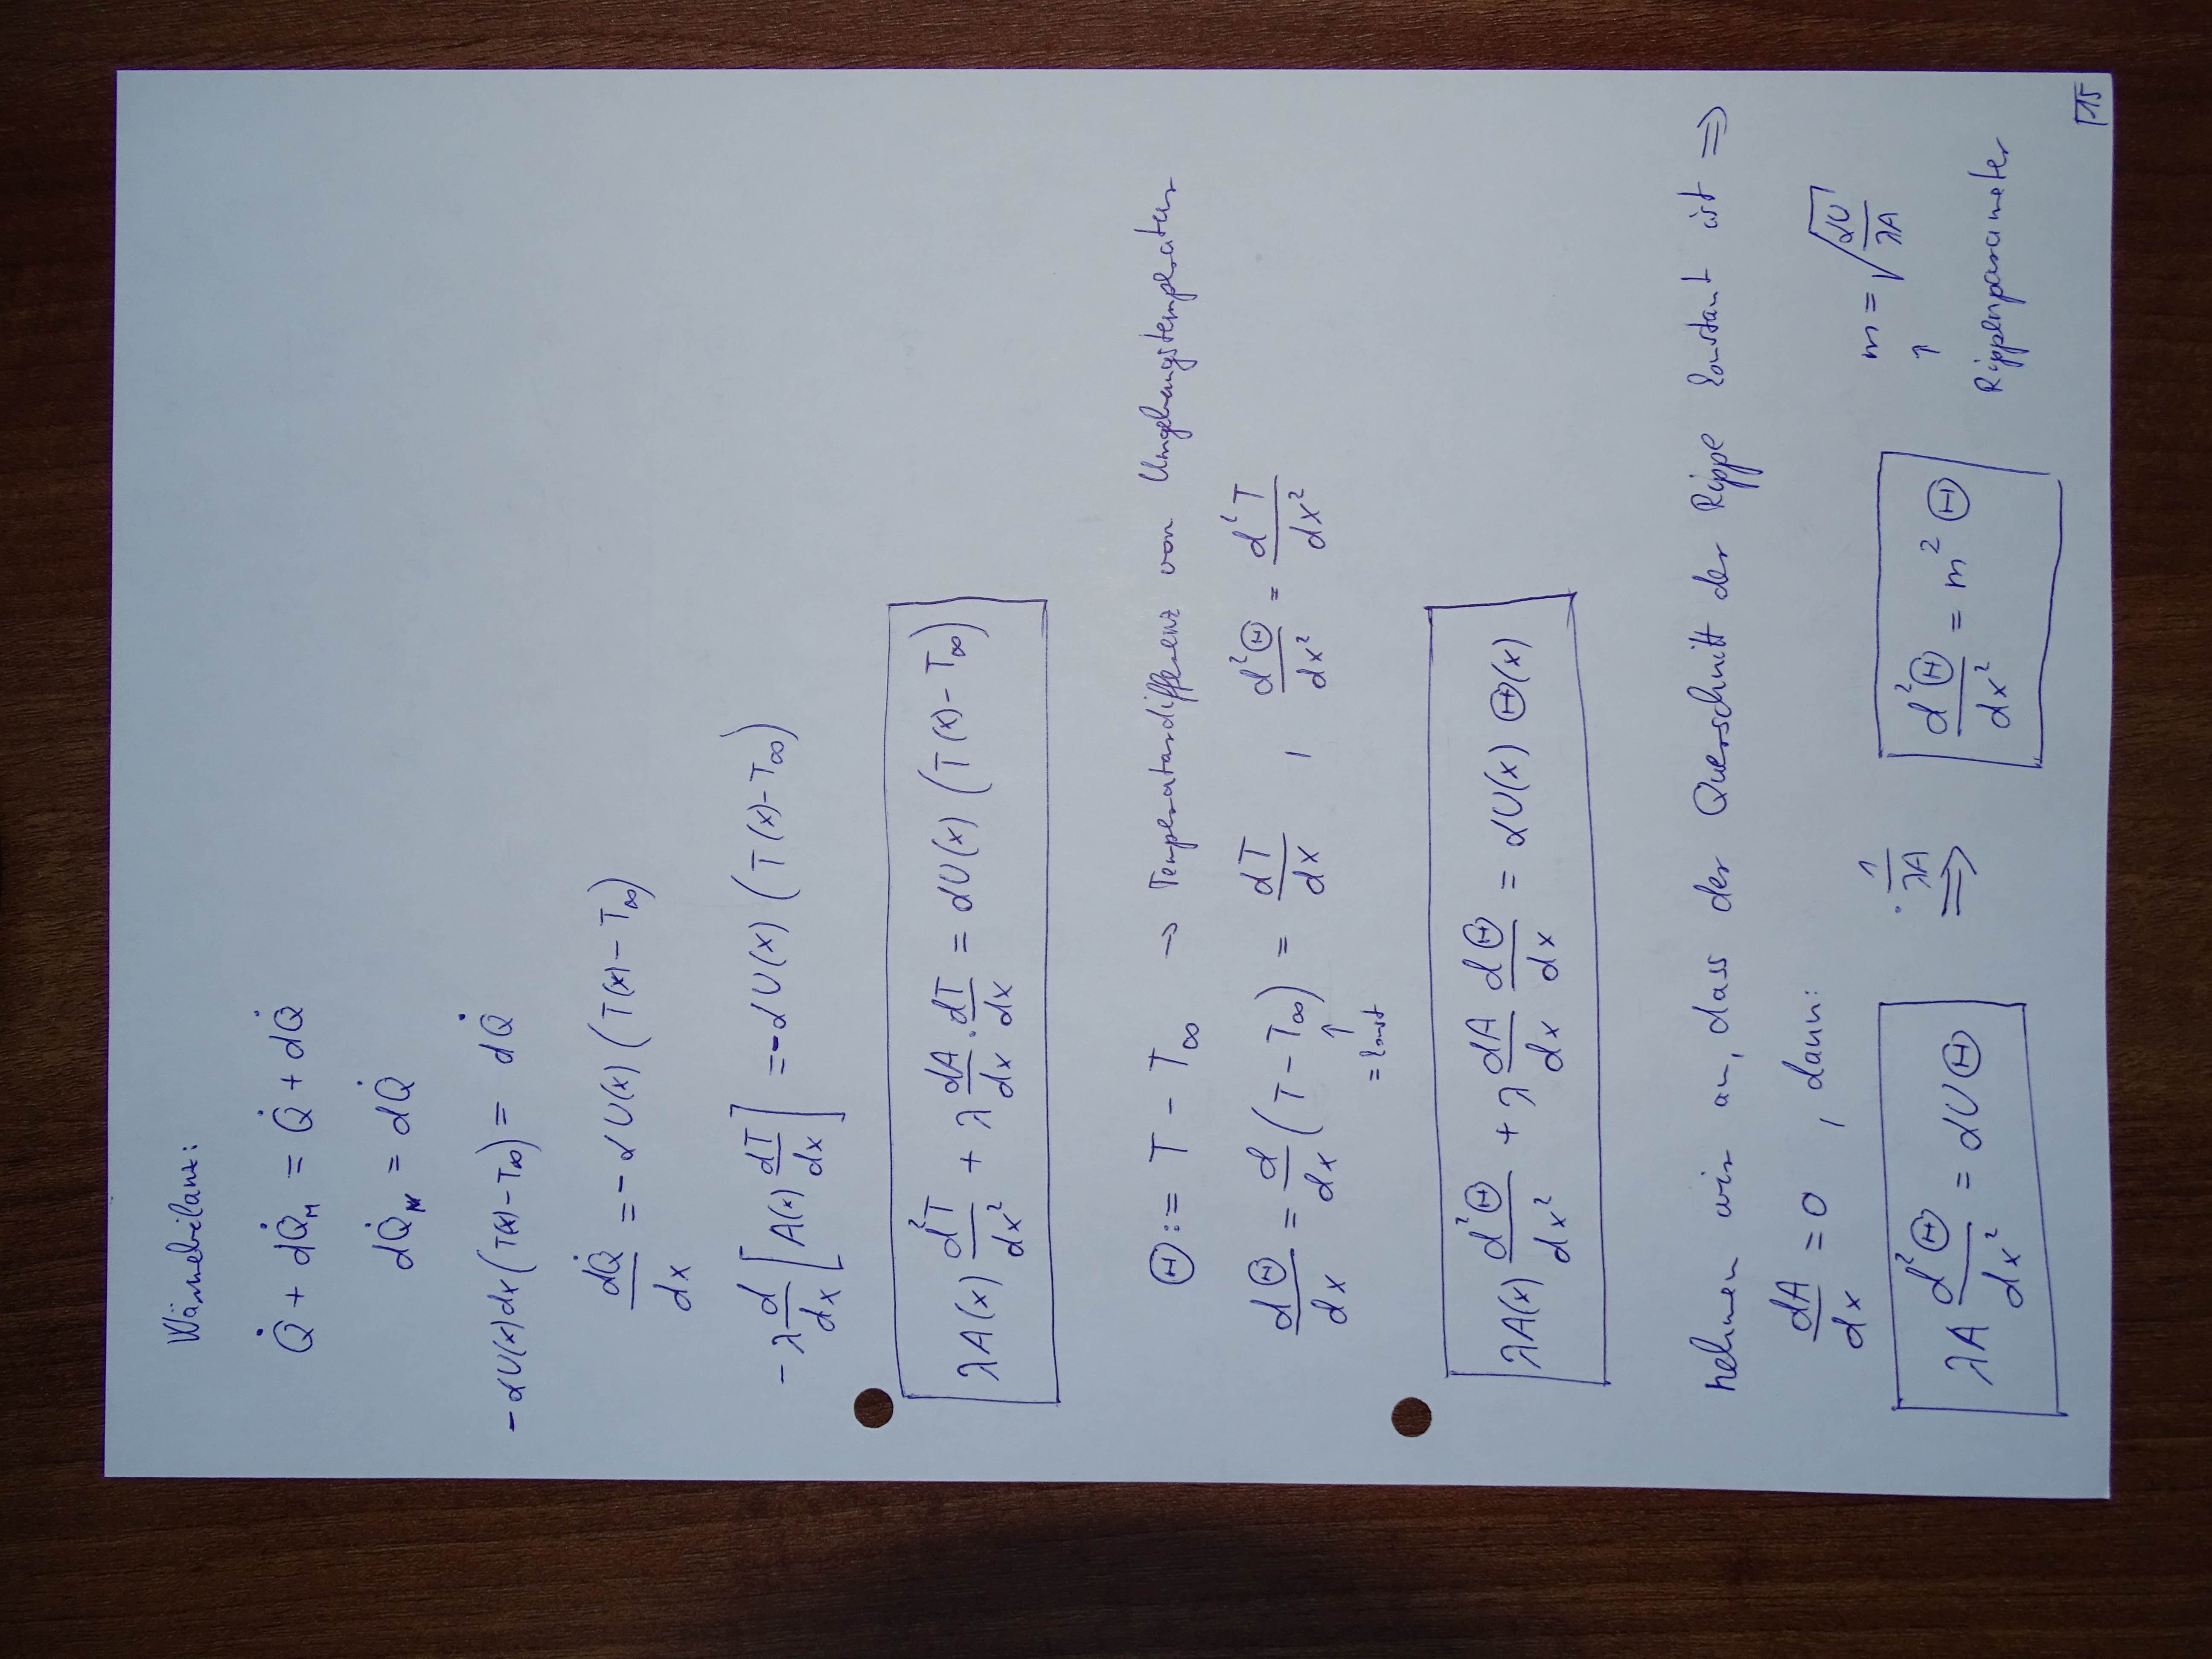 Wärmebilanz:
Q̇ + dQ̇_M = Q̇ + dQ̇
dQ̇_M = dQ̇
-αU(x)dx(T(x)-T∞) = dQ̇
dQ̇/dx = -αU(x)(T(x)-T∞)
-λ d/dx [A(x) dT/dx] = -αU(x)(T(x)-T∞)
λA(x) d²T/dx² + λ dA/dx · dT/dx = αU(x)(T(x)-T∞)
Θ := T - T∞ → Temperaturdifferenz von Umgebungstemperatur
dΘ/dx = d/dx (T-T∞) = dT/dx , d²Θ/dx² = d²T/dx²
↑ = konst
λA(x) d²Θ/dx² + λ dA/dx dΘ/dx = αU(x) Θ(x)
nehmen wir an, dass der Querschnitt der Rippe konstant ist ⇒
dA/dx = 0 , dann:
λA d²Θ/dx² = αUΘ ·1/λA ⇒ d²Θ/dx² = m²Θ m = √(αU/λA)
↑
Rippenparameter
15